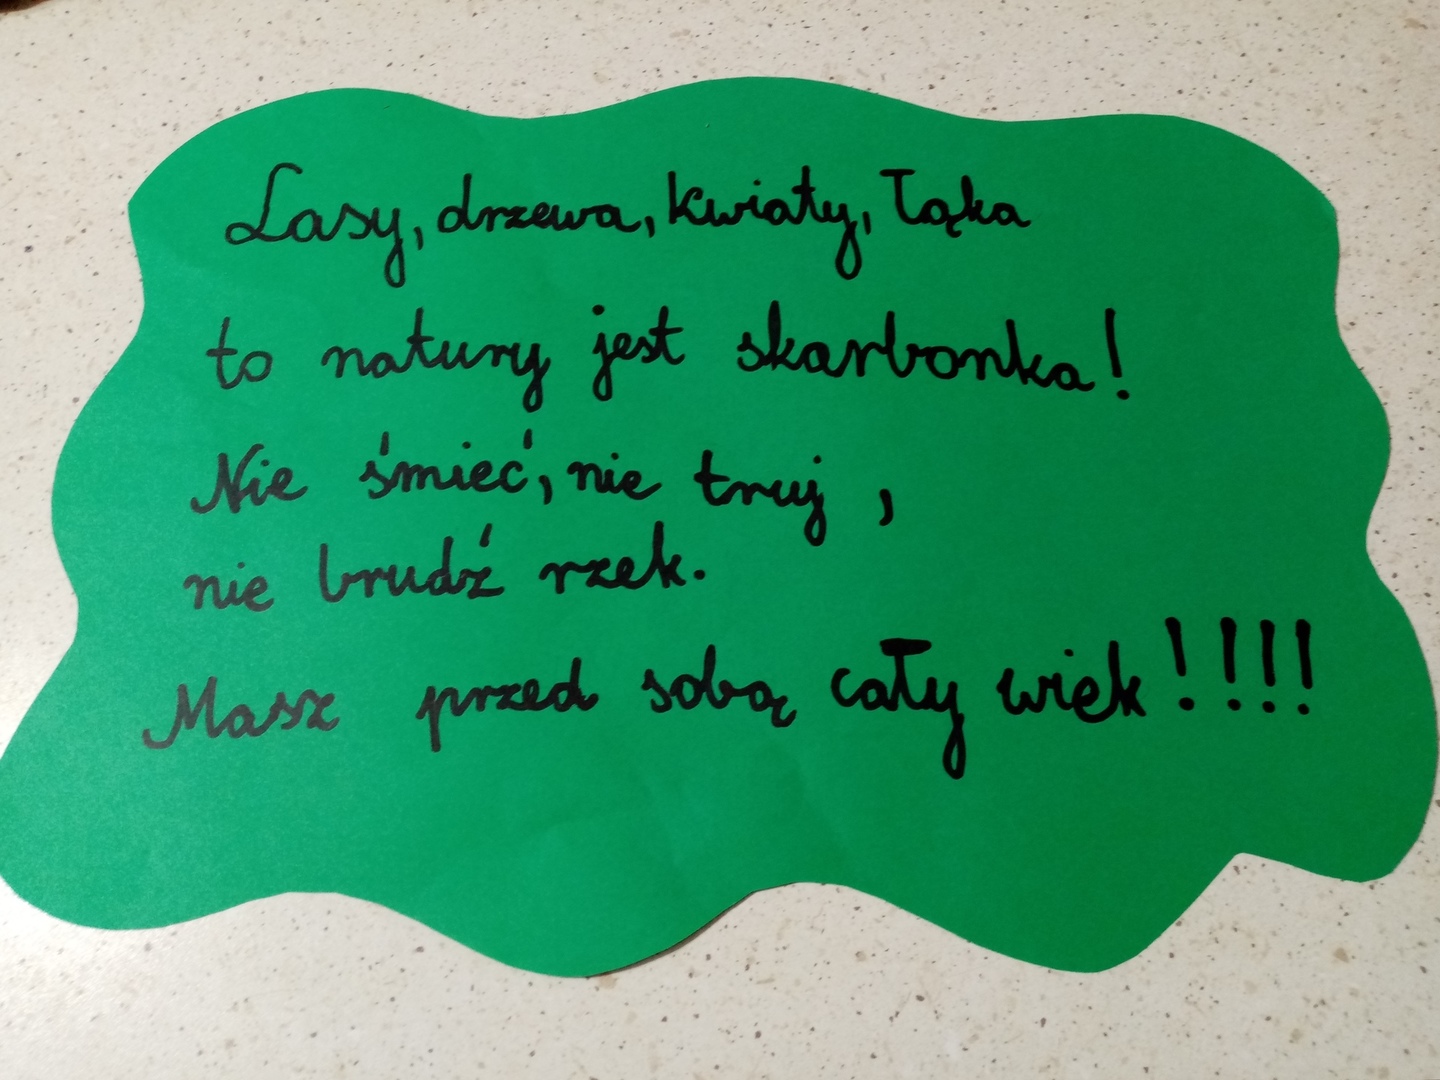 Lasy, drzewa, kwiaty, łąka
to natury jest skarbonka!
Nie śmieć, nie truj ,
nie brudź rzek.
Masz przed sobą cały wiek!!!!